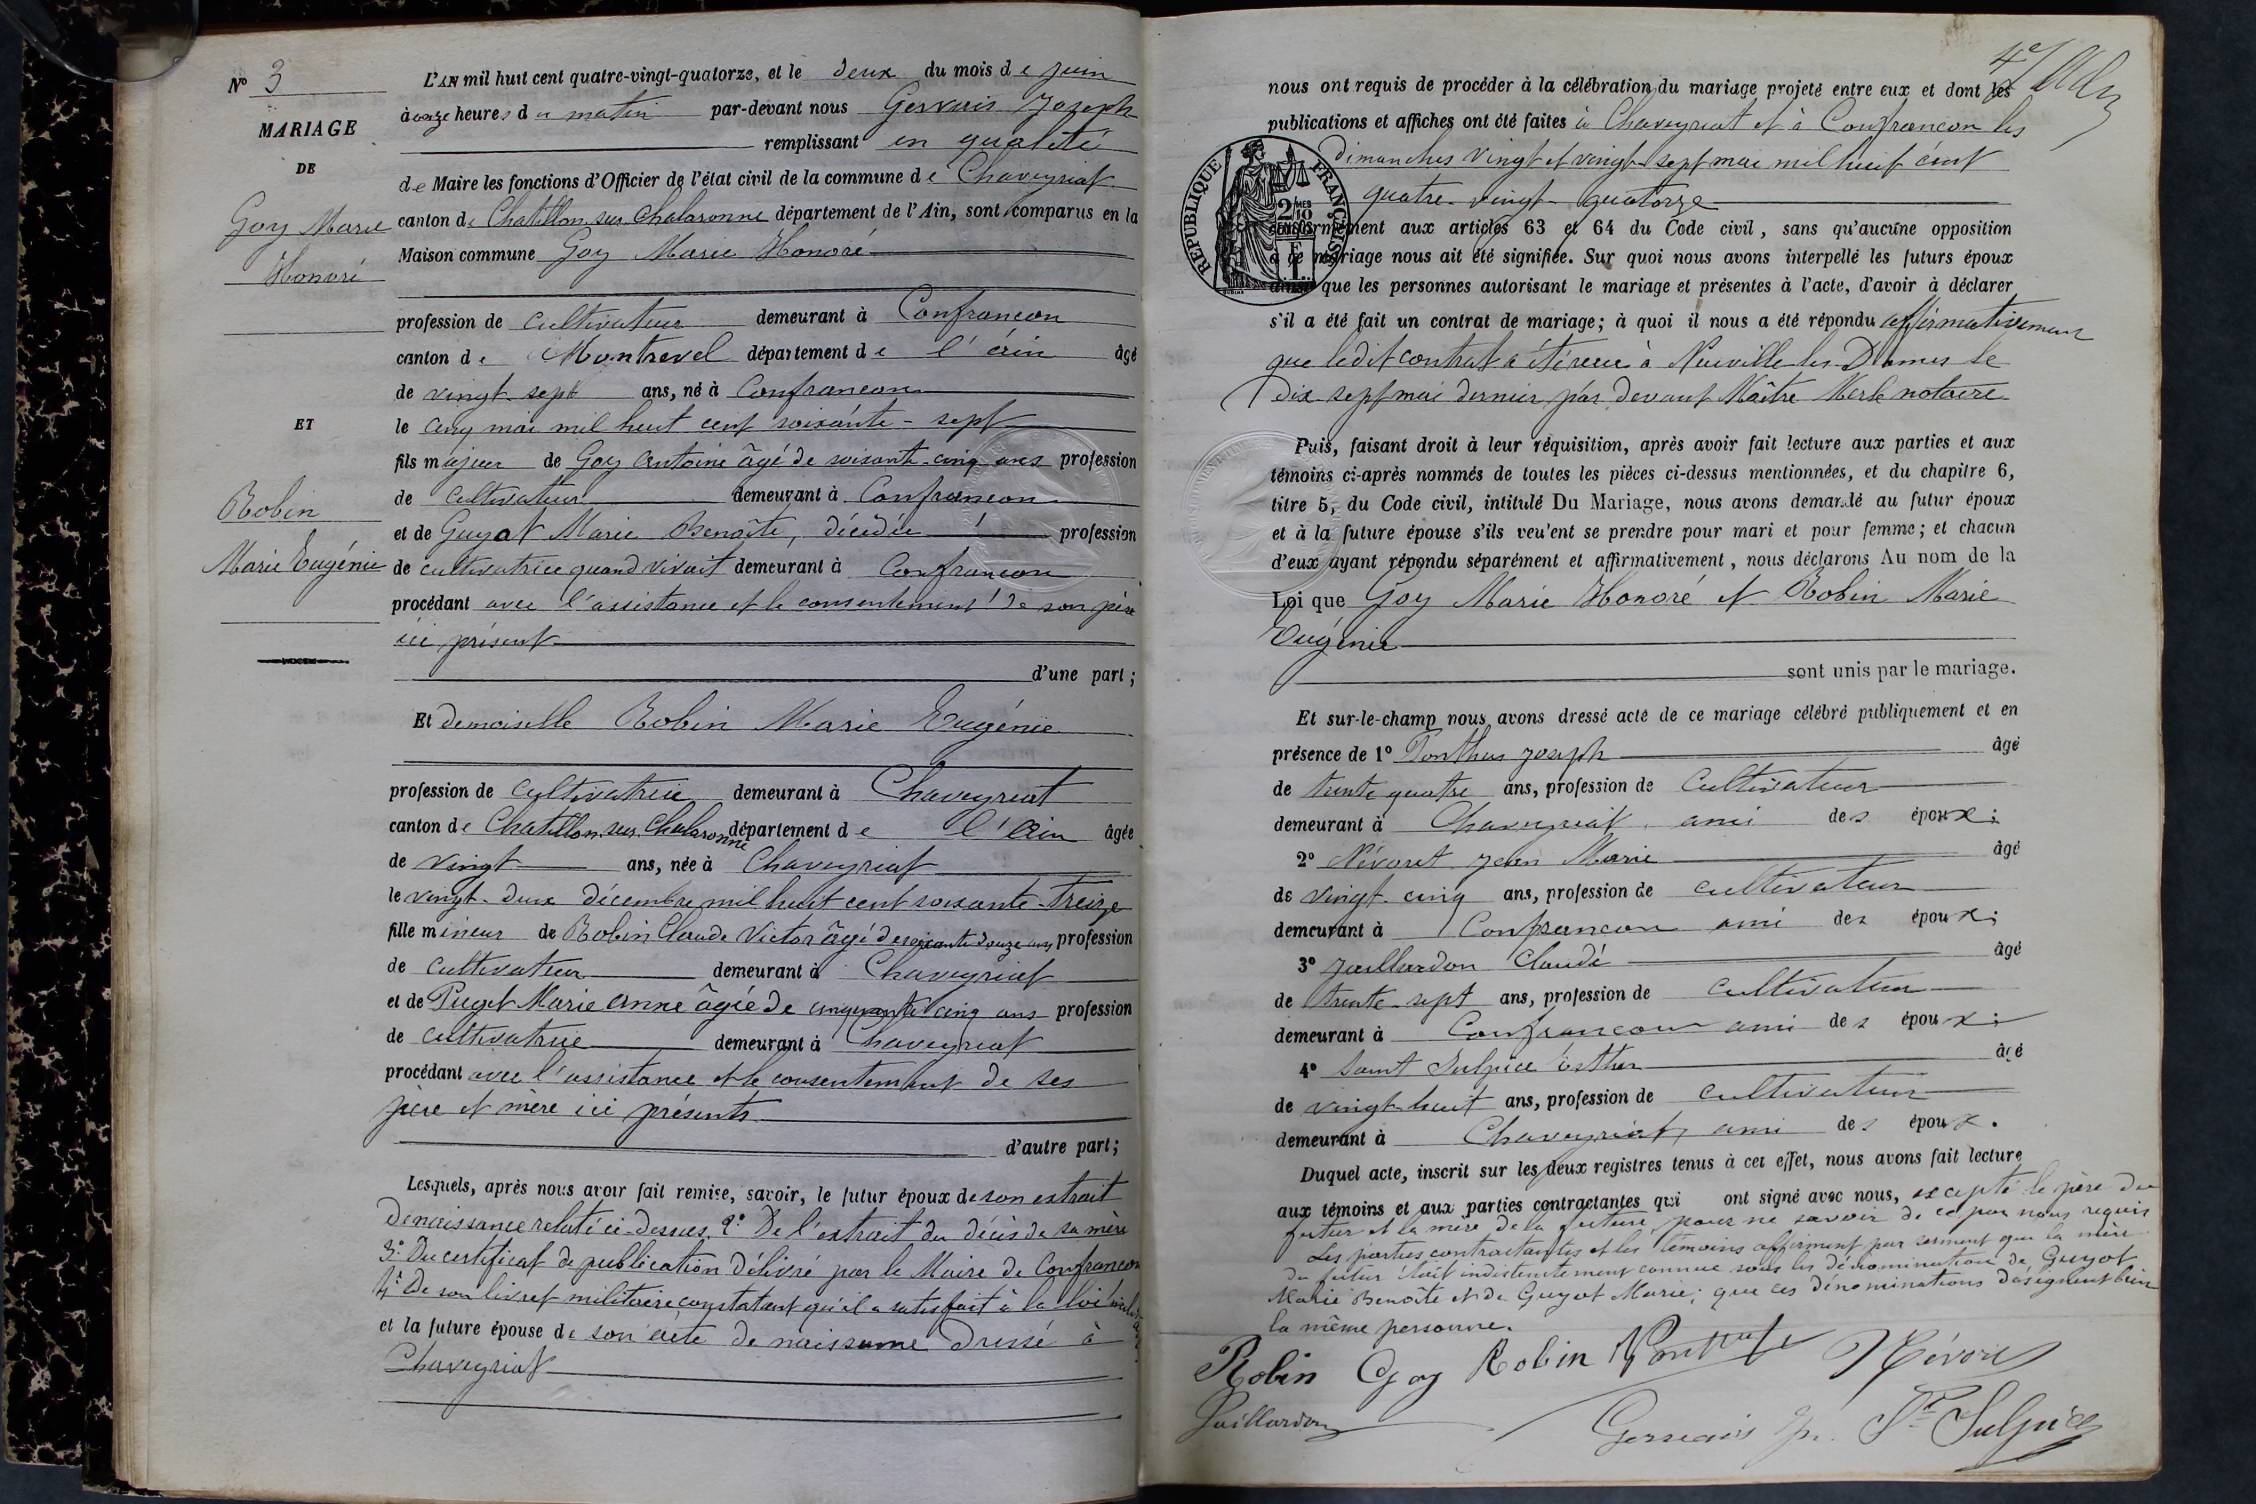 N° 3
MARIAGE
DE
Goy Marie
Honoré
ET
Robin
Marie Eugénie
L'AN mil huit cent quatre-vingt-quatorze, et le deux du mois de juin
à onze heures du matin par-devant nous Gervais Joseph
remplissant en qualité
de Maire les fonctions d'Officier de l'état civil de la commune de Chaveyriat
canton de Chatillon sur Chalaronne département de l'Ain, sont comparus en la
Maison commune Goy Marie Honoré
profession de cultivateur demeurant à Confrancon
canton de Montrevel département de l'Ain âgé
de vingt-sept ans, né à Confrancon
le cinq mai mil huit cent soixante-sept
fils majeur de Goy Antoine âgé de soixante-cinq ans profession
de cultivateur demeurant à Confrancon
et de Guyot Marie Benoîte, décédée profession
de cultivatrice quand vivait demeurant à Confrancon
procédant avec l'assistance et le consentement de son père
ici présent
d'une part;
Et demoiselle Robin Marie Eugénie
profession de cultivatrice demeurant à Chaveyriat
canton de Chatillon sur Chalaronne département de l'Ain âgée
de vingt ans, née à Chaveyriat
le vingt-deux décembre mil huit cent soixante-treize
fille mineur de Robin Claude Victor âgé de soixante douze ans profession
de cultivateur demeurant à Chaveyriat
et de Puget Marie Anne âgée de cinquante cinq ans profession
de cultivatrice demeurant à Chaveyriat
procédant avec l'assistance et le consentement de ses
père et mère ici présents
d'autre part;
Lesquels, après nous avoir fait remise, savoir, le futur époux de son extrait
de naissance relaté ci-dessus. 2° De l'extrait du décès de sa mère
3° Du certificat de publication délivré par le Maire de Confrancon
4° De son livret militaire constatant qu'il a satisfait à la loi
et la future épouse de son acte de naissance dressé à
Chaveyriat
nous ont requis de procéder à la célébration du mariage projeté entre eux et dont les
publications et affiches ont été faites à Chaveyriat et à Confrancon les
dimanches vingt et vingt-sept mai mil huit cent
quatre-vingt-quatorze
RÉPUBLIQUE FRANÇAISE
2/10 EN SUS
1F
conformément aux articles 63 et 64 du Code civil, sans qu'aucune opposition
à ce mariage nous ait été signifiée. Sur quoi nous avons interpellé les futurs époux
ainsi que les personnes autorisant le mariage et présentes à l'acte, d'avoir à déclarer
s'il a été fait un contrat de mariage; à quoi il nous a été répondu affirmativement
que ledit contrat a été reçu à Neuville les Dames le
dix-sept mai dernier par devant Maître Merle notaire
Puis, faisant droit à leur réquisition, après avoir fait lecture aux parties et aux
témoins ci-après nommés de toutes les pièces ci-dessus mentionnées, et du chapitre 6,
titre 5, du Code civil, intitulé Du Mariage, nous avons demandé au futur époux
et à la future épouse s'ils veu'ent se prendre pour mari et pour femme; et chacun
d'eux ayant répondu séparément et affirmativement, nous déclarons Au nom de la
Loi que Goy Marie Honoré et Robin Marie
Eugénie
sont unis par le mariage.
Et sur-le-champ nous avons dressé acte de ce mariage célébré publiquement et en
présence de 1° Ponthus Joseph âgé
de trente quatre ans, profession de cultivateur
demeurant à Chaveyriat, ami des époux;
2° Névoret Jean Marie âgé
de vingt-cinq ans, profession de cultivateur
demeurant à Confrancon ami des époux;
3° Juillardon Claude âgé
de trente-sept ans, profession de cultivateur
demeurant à Confrancon ami des époux;
4° Saint Sulpice Esther âgé
de vingt-huit ans, profession de cultivateur
demeurant à Chaveyriat, ami des époux.
Duquel acte, inscrit sur les deux registres tenus à cet effet, nous avons fait lecture
aux témoins et aux parties contractantes qui ont signé avec nous, excepté le père du
futur et la mère de la future, pour ne savoir de ce par nous requis
Les parties contractantes et les témoins affirment par serment que la mère
du futur était indistinctement connue sous les dénominations de Guyot
Marie Benoîte et de Guyot Marie; que ces dénominations désignent bien
la même personne.
Robin Goy Robin Ponthus Névoret
Juillardon Gervais Jh. St Sulpice